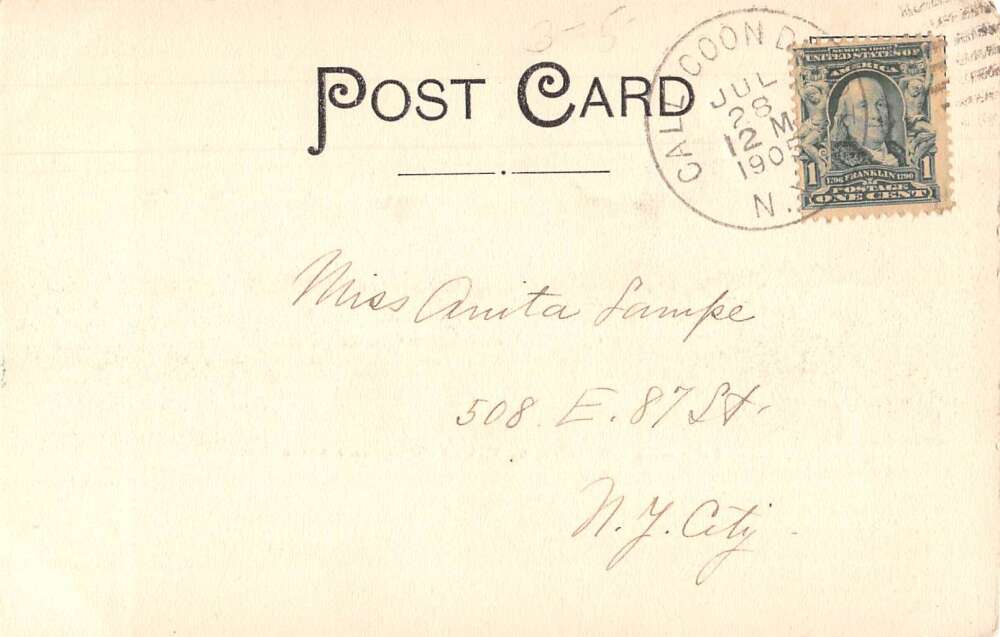 3-5
POST CARD
CALLICOON DEPOT
JUL
28
12 M
1905
N.Y.
SERIES 1902
UNITED STATES OF
AMERICA
1 1706 FRANKLIN 1790 1
POSTAGE
ONE CENT
Miss Anita Lampe
508 E. 87 St.
N.Y. City